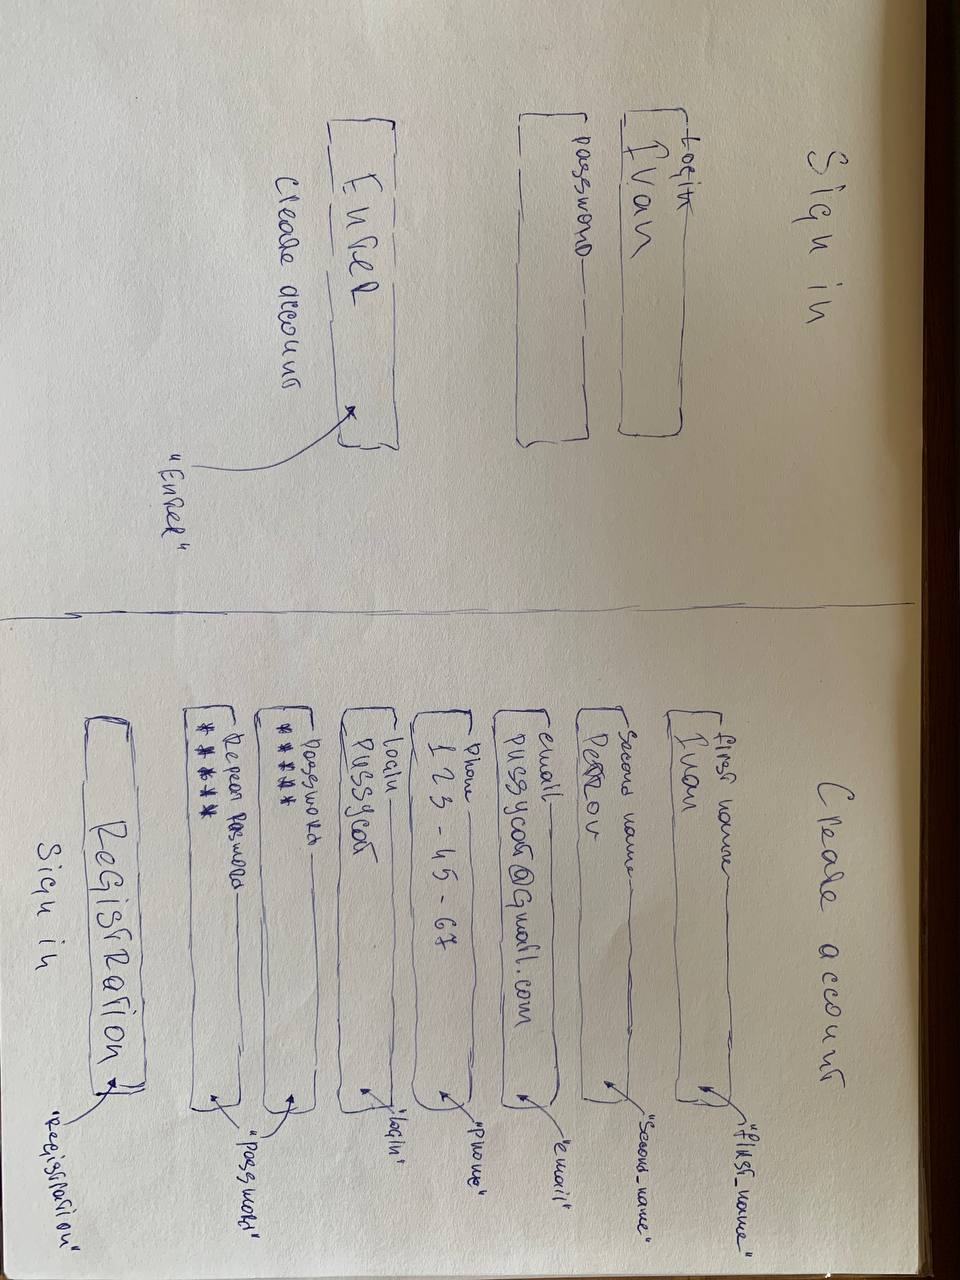 Sign in
Login
Ivan
password
Enter
Create account
"Enter"
Create account
first name
Ivan
"first_name"
second name
Petrov
"Second_name"
email
pussycat@gmail.com
"email"
Phone
123-45-67
"Phone"
login
Pussycat
"login"
password
*****
Repeat Password
******
"password"
Registration
"Registration"
Sign in